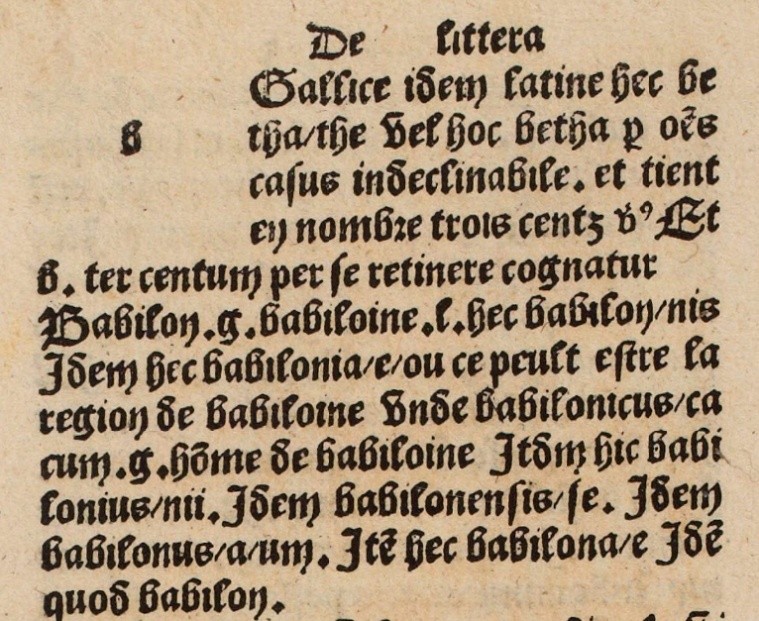 De littera
Gallice idem latine hec be
b tha/the vel hoc betha ꝑ oēs
casus indeclinabile. et tient
en nombre trois centz v̾ꝰ Et
b. ter centum per se retinere cognatur
Babilon.g.babiloine.l.hec babilon/nis
Idem hec babilonia/e/ou ce peult estre la
region de babiloine vnde babilonicus/ca
cum.g.hōme de babiloine Itdm hic babi
lonius/nii. Idem babilonensis/se. Idem
babilonus/a/um. Itē hec babilona/e Idē
quod babilon.